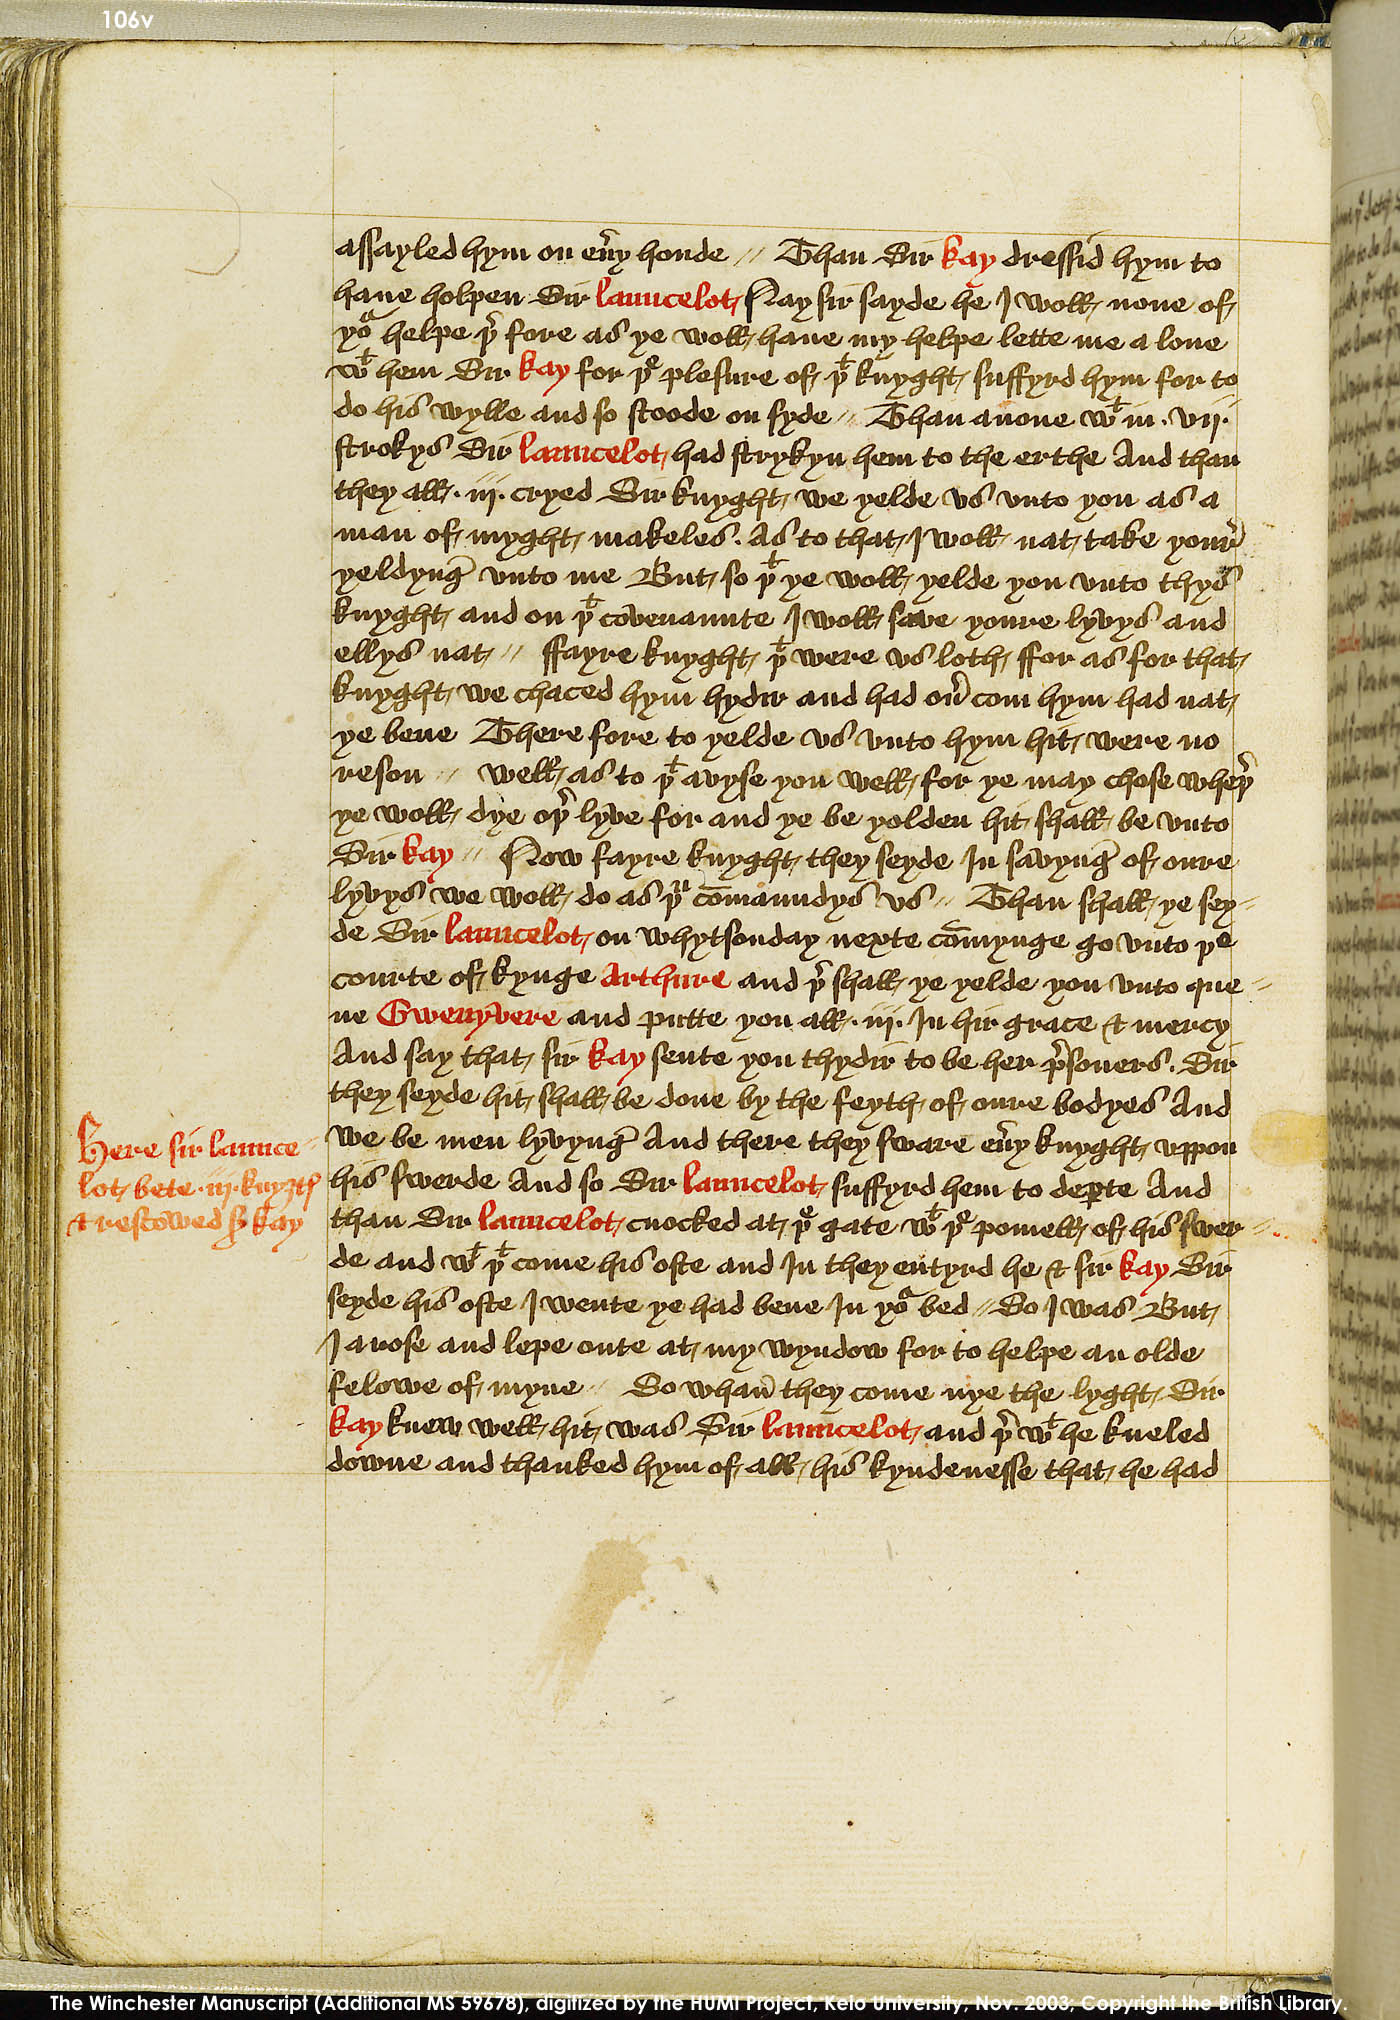 106v
assayled hym on eu̓y honde // Than Sir kay dressid hym to
haue holpen Sir launcelot Nay sir sayde he I woll none of
yoᵃ helpe þ̓ fore as ye woll haue my helpe lette me a lone
wᵗ hem Sir kay for þᵉ plesure of þᵗ knyght suffyrd hym for to
do his wylle and so stoode on syde // Than anone wᵗ in · vij ·
strokys Sir launcelot had strykyn hem to the erthe And than
they all · iij · cryed Sir knyght we yelde vs vnto you as a
man of myght makeles . As to that I woll nat take your̓
yeldyng̓ vnto me But so þᵗ ye woll yelde you vnto thys
knyght and on þᵗ covenaunte I woll save youre lyvys and
ellys nat // ffayre knyght þᵗ were vs loth ffor as for that
knyght we chaced hym hydir and had ou̓ com hym had nat
ye bene There fore to yelde vs vnto hym hit were no
reson // well as to þᵗ avyse you well for ye may chose wheþ̓
ye woll dye oþ̓ lyve for and ye be yolden hit shall be vnto
Sir kay // Now fayre knyght they seyde In savyng̓ of oure
lyvys we woll do as þᵘ cōmaundys vs // Than shall ye sey=
de Sir launcelot on whytsonday nexte cōmynge go vnto þᵉ
courte of kynge Arthure and þ̓ shall ye yelde you vnto que=
ne Gwenyvere and putte you all · iij · In hir grace & mercy
And say that sir kay sente you thydir to be her p̓soners . Sir
they seyde hit shall be done by the feyth of oure bodyes And
we be men lyvyng̓ And there they sware eu̓y knyght vppon
his swerde And so Sir launcelot suffyrd hem to deꝑte And
than Sir launcelot cnocked at þᵉ gate wᵗ þᵉ pomell of his swer=
de and wᵗ þᵗ come his oste and In they entyrd he & sir kay Sir
seyde his oste I wente ye had bene In yoᵃ bed // So I was But
I arose and lepe oute at my wyndow for to helpe an olde
felowe of myne // So whan̓ they come nye the lyght Sir
kay knew well hit was Sir launcelot and þ̓ wᵗ he kneled
downe and thanked hym of all his kyndenesse that he had
Here sir launce=
lot bete · iij · knyȝtꝭ
& rescowed sʳ kay
The Winchester Manuscript (Additional MS 59678), digitized by the HUMI Project, Keio University, Nov. 2003; Copyright the British Library.